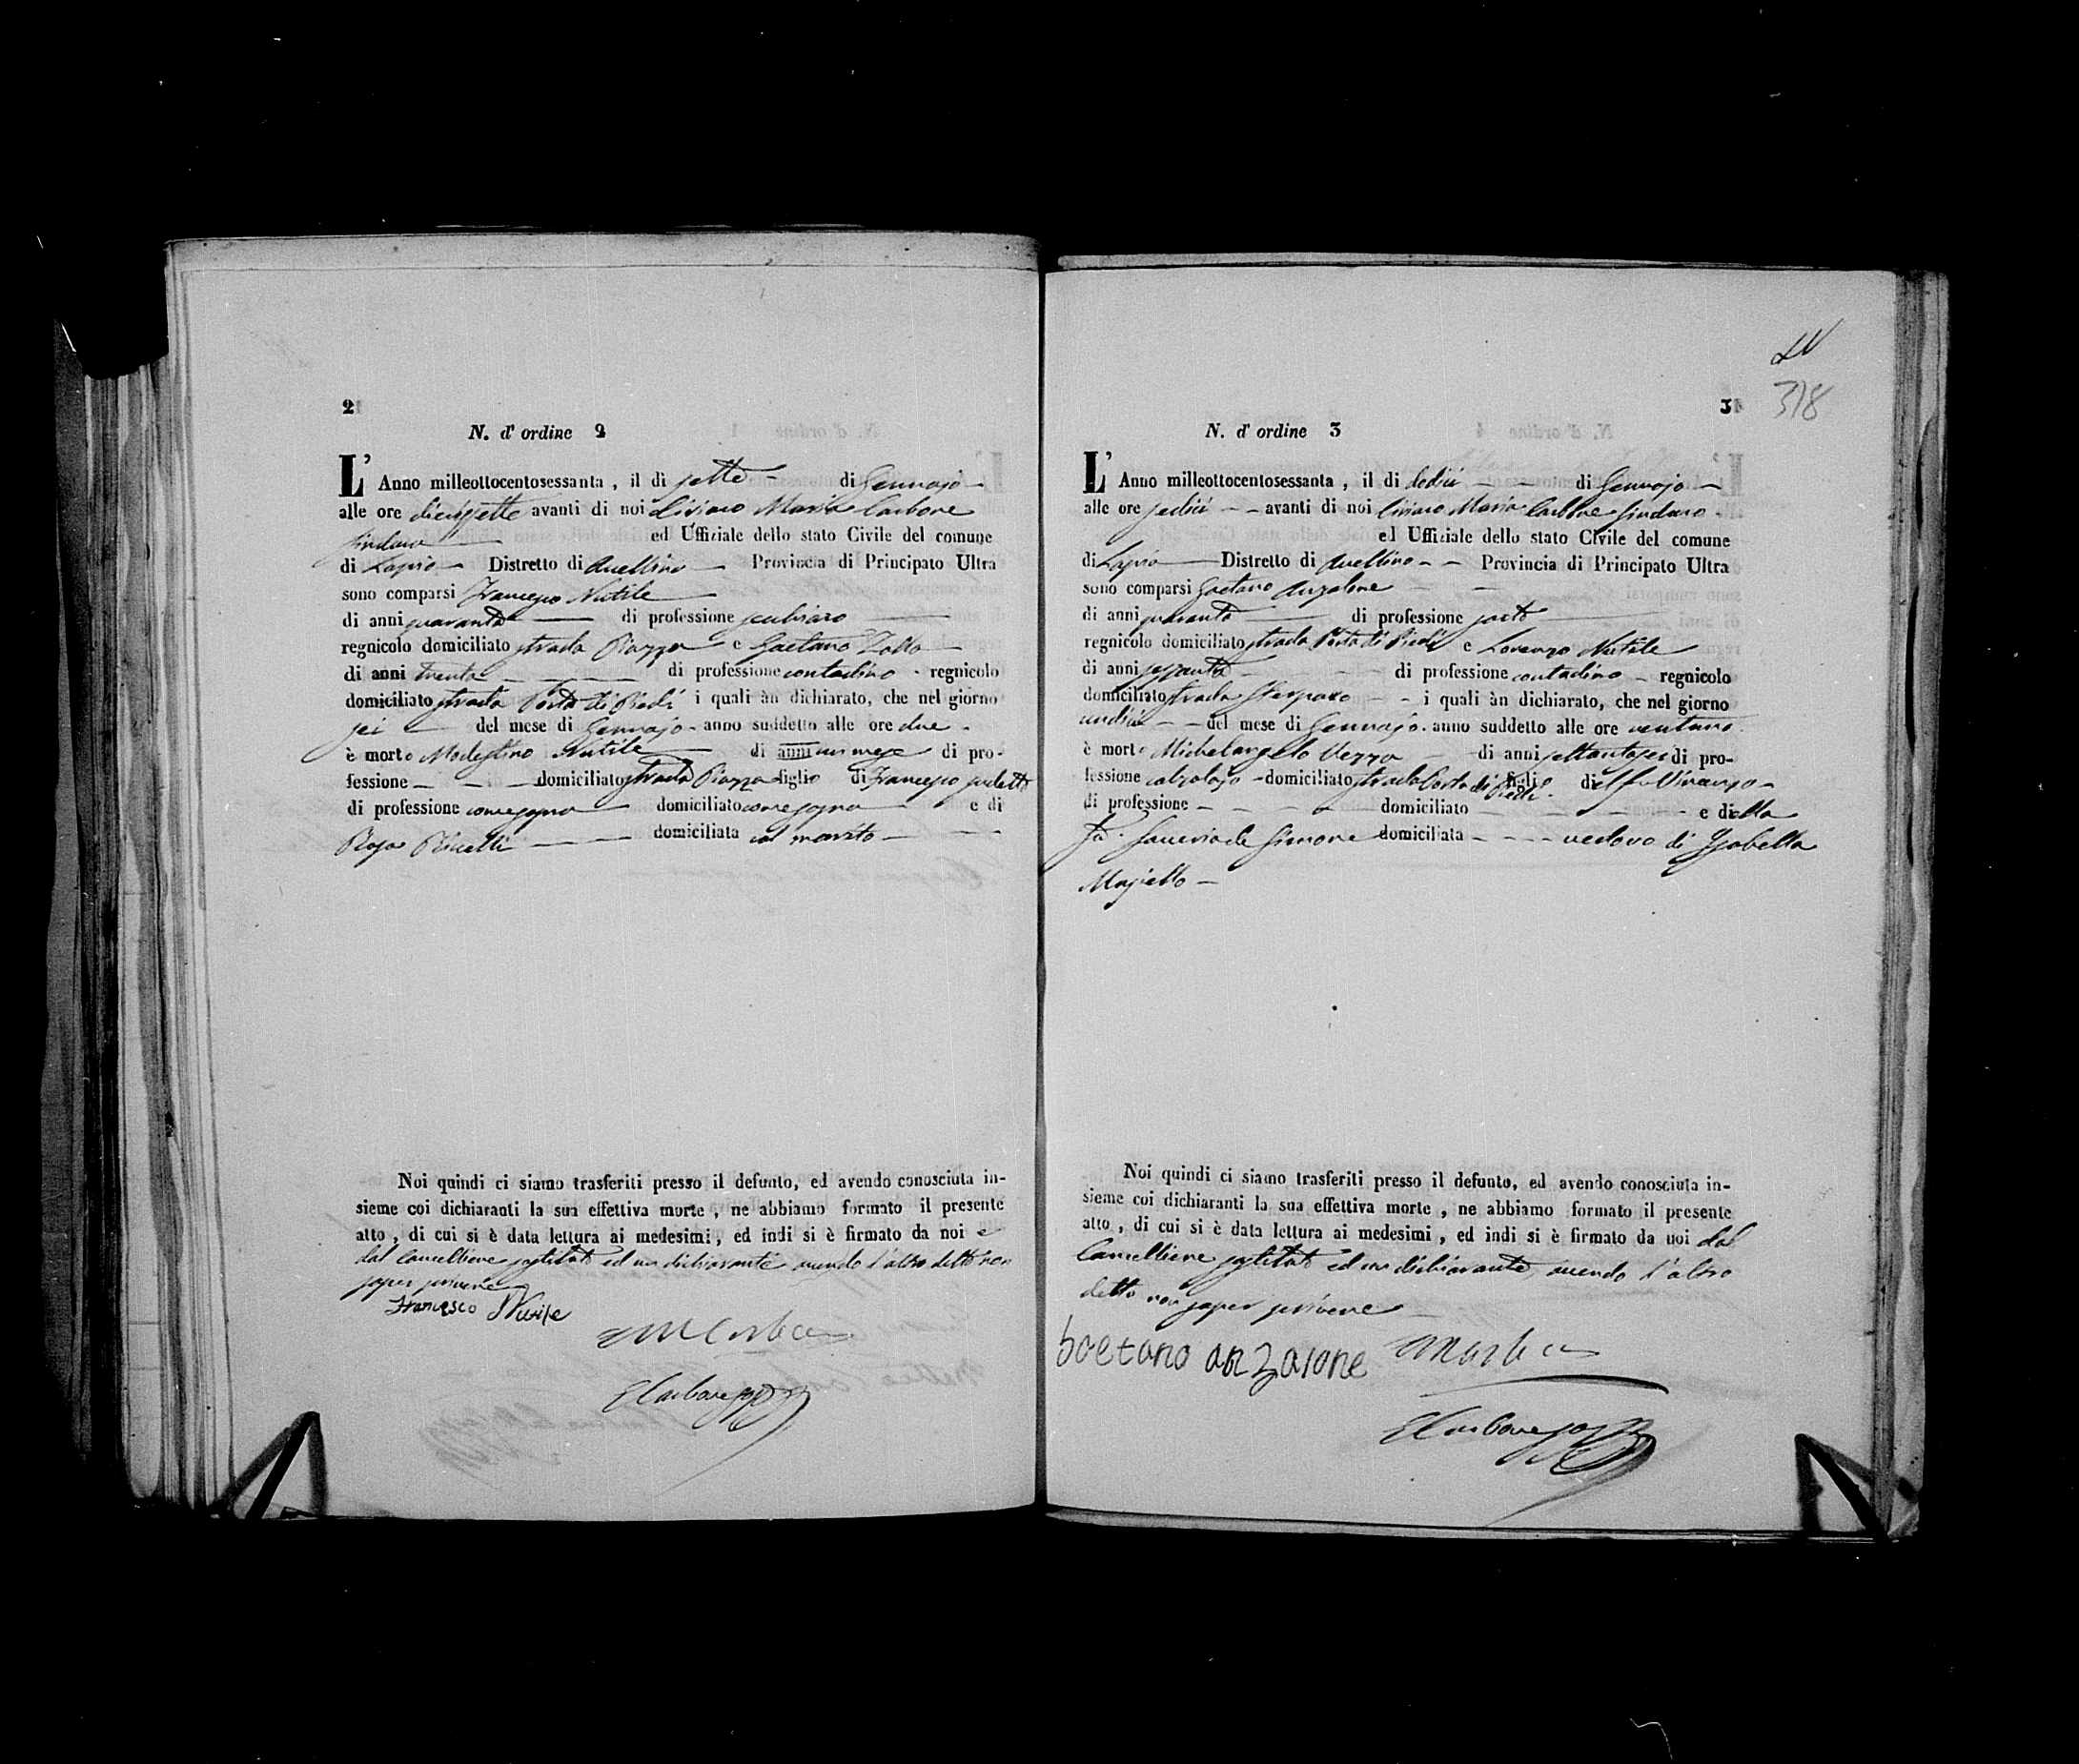 2
N. d' ordine 2
L' Anno milleottocentosessanta , il di sette di Gennajo
alle ore diciassette avanti di noi Ciriaco Maria Carbone
Sindaco ed Uffiziale dello stato Civile del comune
di Lapio Distretto di Avellino Provincia di Principato Ultra
sono comparsi Francesco Nutile
di anni quaranta di professione
regnicolo domiciliato strada Piazza e Gaetano Zollo
di anni trenta di professione contadino regnicolo
domiciliato strada Porta di Piedi i quali àn dichiarato, che nel giorno
sei del mese di Gennajo anno suddetto alle ore due
è morto Modestino Nutile di anni un mese di pro-
fessione domiciliato strada Piazza figlio di Francesco sudetto
di professione come sopra domiciliato come sopra e di
Rosa domiciliata col marito
Noi quindi ci siamo trasferiti presso il defunto, ed avendo conosciuta in-
sieme coi dichiaranti la sua effettiva morte , ne abbiamo formato il presente
atto , di cui si è data lettura ai medesimi , ed indi si è firmato da noi e
dal Cancelliere sostituto ed un dichiarante avendo l'altro detto non
saper scrivere
Francesco Nutile
ECarbone
LV
3
318
N. d' ordine 3
L' Anno milleottocentosessanta , il di dodici di Gennajo
alle ore sedici avanti di noi Ciriaco Maria Carbone Sindaco
ed Uffiziale dello stato Civile del comune
di Lapio Distretto di Avellino Provincia di Principato Ultra
sono comparsi Gaetano Anzalone
di anni quaranta di professione sarto
regnicolo domiciliato strada Porta di Piedi e Lorenzo Nutile
di anni sessanta di professione contadino regnicolo
domiciliato strada i quali àn dichiarato, che nel giorno
undici del mese di Gennajo anno suddetto alle ore ventuno
è morto Michelangelo Verro di anni settantasei di pro-
fessione calzolajo domiciliato strada Porta di Piedi figlio del fu Vincenzo
di professione domiciliato e della
fu Saveria de Simone domiciliata vedovo di Isabella
Masiello
Noi quindi ci siamo trasferiti presso il defunto, ed avendo conosciuta in-
sieme coi dichiaranti la sua effettiva morte , ne abbiamo formato il presente
atto , di cui si è data lettura ai medesimi , ed indi si è firmato da noi dal
Cancelliere sostituto ed un dichiarante avendo l'altro
detto non saper scrivere
Gaetano anzalone
ECarbone